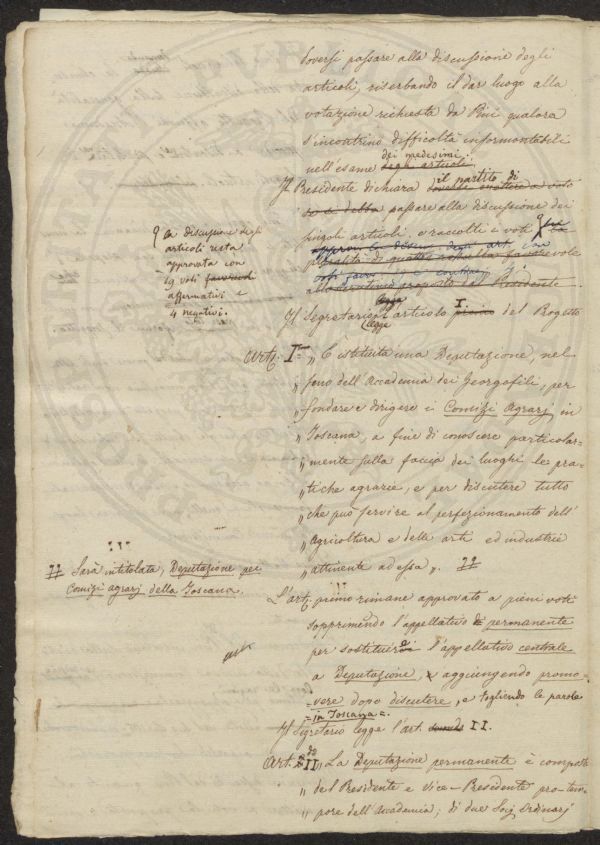 doversi passare alla discussione degli
articoli, riserbando il dar luogo alla
votazione richiesta da Rivi qualora
s'incontrino difficoltà insormontabili
dei medesimi.
nell'esame degli articoli.
il partito di
Il Presidente dichiara
se si debba passare alla discussione dei
singoli articoli, e raccolti i voti
la discussione degli
articoli resta
approvata con
19 voti favorevoli
affermativi e
4 negativi.
pluralità di quattro favorevole
proposto dal Presidente
legge I.
Il Segretario articolo primo del Progetto
legge
Artº. I.mo „ È istituita una Deputazione, nel
„ seno dell'Accademia dei Georgofili, per
„ fondare e dirigere i Comizi Agrarj in
„ Toscana, a fine di conoscere particolar=
„ mente sulla faccia dei luoghi le pra=
„ tiche agrarie, e per discutere tutto
„ che può servire al perfezionamento dell'
„ Agricoltura e delle arti ed industrie
„ attinente ad essa „.
Sarà intitolata, Deputazione pei
Comizi agrarj della Toscana.
L'artº. primo rimane approvato a pieni voti
sopprimendo l'appellativo di permanente
per sostituirvi l'appellativo centrale
a Deputazione, aggiungendo promo=
vere dopo discutere, e togliendo le parole
= in Toscana =.
Il Segretario legge l'art. secondo II.
Art. II.do „ La Deputazione permanente è composta
„ del Presidente e Vice-Presidente pro-tem
„ pore dell'Accademia; di due Socj Ordinarj